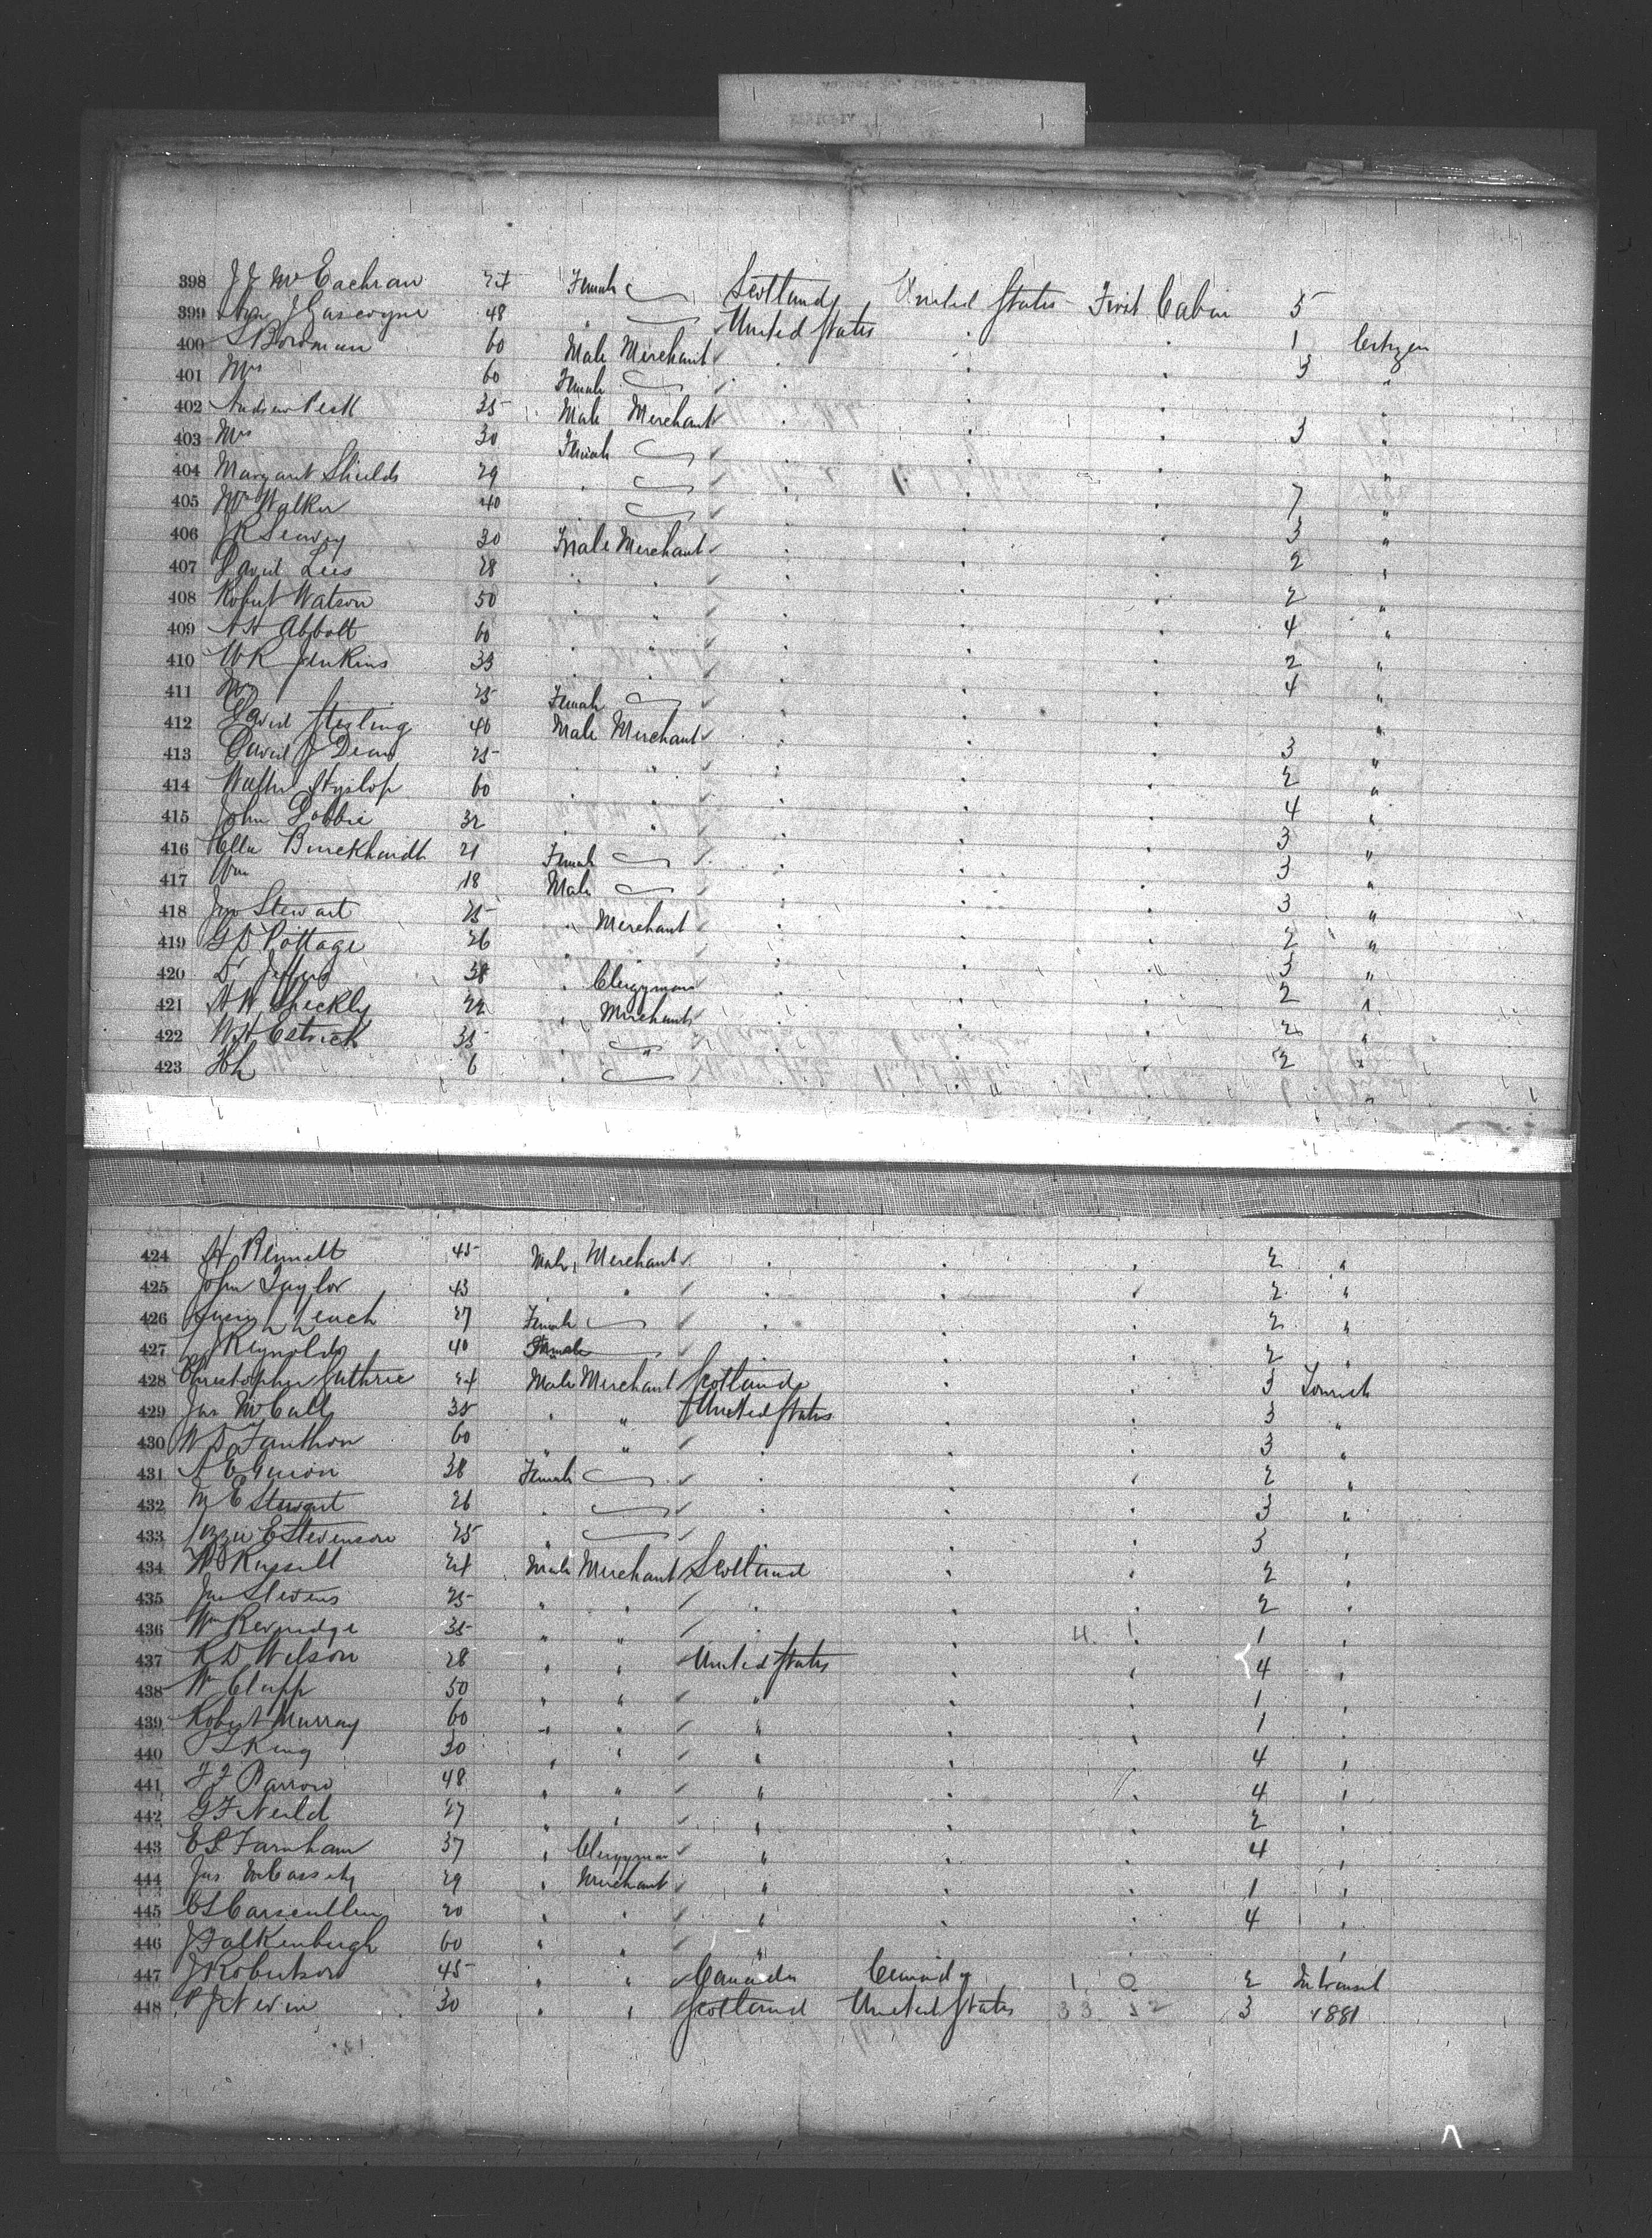 398 J J McEachran 24 Female Scotland United States First Cabin 5
399 Gascoyne 48 " United States 1 Citizen
400 S Bowman 60 Male Merchant 3 "
401 Mrs 60 Female "
402 Andrew Peck 35 Male Merchant 3 "
403 Mrs 30 Female "
404 Margaret Shields 29 " 7 "
405 Walker 40 3 "
406 J R 30 Male Merchant 2 "
407 David Lees 28 " " 2 "
408 Robert Watson 50 " " 4 "
409 A H Abbott 60 " " 2 "
410 W R Jenkins 33 " " 4 "
411 Mrs 25 Female "
412 David Sterling 40 Male Merchant 3 "
413 David J Dean 25 " " 2 "
414 Walter Hyslop 60 " " 4 "
415 John Dobbie 32 " " 3 "
416 Ella Burckhardt 21 Female 3 "
417 Wm 18 Male 3 "
418 Jno Stewart 25 " Merchant 2 "
419 G D Pottage 26 " " 3 "
420 Dr Jeffers 38 " Clergyman 2 "
421 A W 22 " Merchant 2 "
422 W H Estrick 35 " " 2 "
423 6 "
424 H Bennett 45 Male Merchant 2 "
425 John Taylor 43 " " 2 "
426 27 Female 2 "
427 Reynolds 40 Female 2 "
428 Christopher Guthrie 24 Male Merchant Scotland 3 Tourist
429 Jas McCall 35 " " United States 3 "
430 W D Fanthon 60 " " 3 "
431 A E Guion 38 Female 2 "
432 M E Stewart 26 " 3 "
433 Lizzie E Stevenson 25 " 3 "
434 Russell 24 Male Merchant Scotland 2 "
435 Jas Stevens 25 " " " 2 "
436 Wm 35 " " " 1 "
437 R D Wilson 28 " " United States 4 "
438 Wm Clapp 50 " " " 1 "
439 Robert Murray 60 " " " 1 "
440 S King 30 " " " 4 "
441 F F Barrow 48 " " " 4 "
442 G F Neild 27 " " " 2 "
443 E S Farnham 37 " Clergyman " 4 "
444 Jas McCassety 29 " Merchant " 1 "
445 C S Carscallen 20 " " " 4 "
446 J Falkenburgh 60 " " " "
447 J Robertson 45 " " Canada Canada 1 0 2 In transit
448 P J Nevin 30 " " Scotland United States 33 22 3 1881